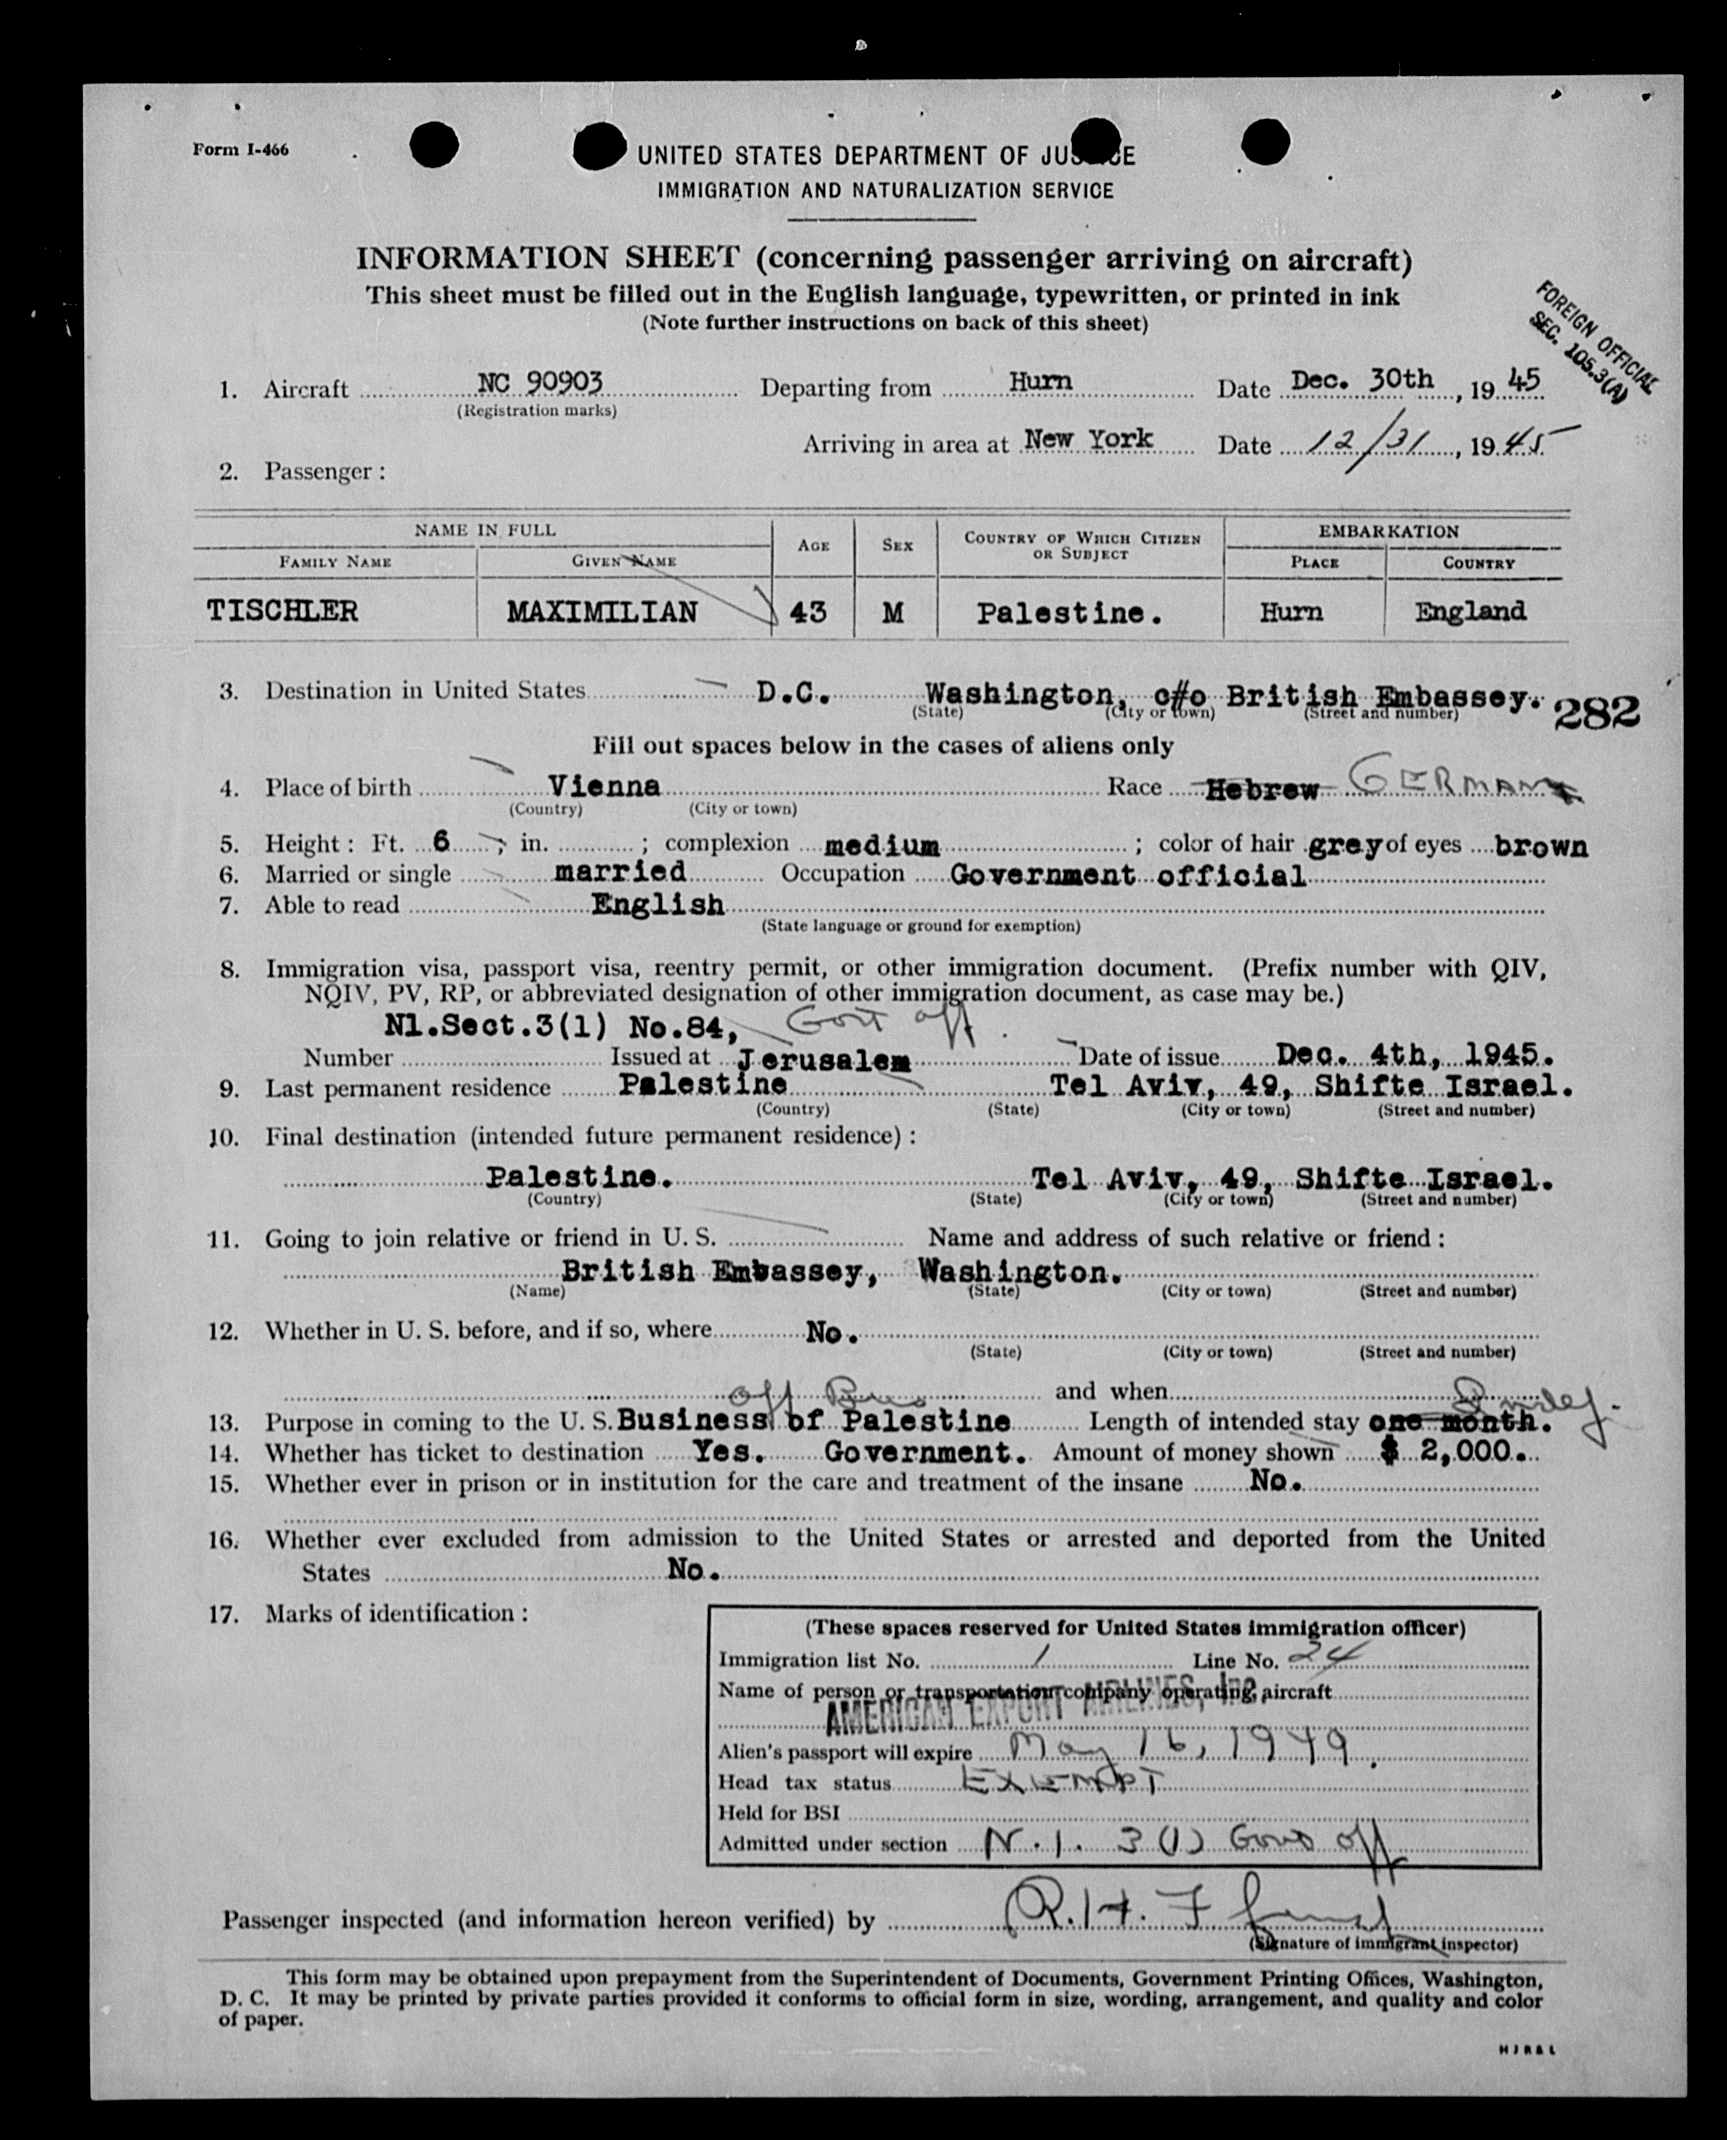 Form I-466
UNITED STATES DEPARTMENT OF JUSTICE
IMMIGRATION AND NATURALIZATION SERVICE
INFORMATION SHEET (concerning passenger arriving on aircraft)
This sheet must be filled out in the English language, typewritten, or printed in ink
(Note further instructions on back of this sheet)
FOREIGN OFFICIAL
SEC. 105.3(A)
1. Aircraft NC 90903 Departing from Hurn Date Dec. 30th, 1945
(Registration marks)
Arriving in area at New York Date 12/31, 1945
2. Passenger:
NAME IN FULL AGE SEX COUNTRY OF WHICH CITIZEN OR SUBJECT EMBARKATION
FAMILY NAME GIVEN NAME PLACE COUNTRY
TISCHLER MAXIMILIAN 43 M Palestine. Hurn England
3. Destination in United States D.C. Washington, c/o British Embassey.
(State) (City or town) (Street and number)
282
Fill out spaces below in the cases of aliens only
4. Place of birth Vienna Race Hebrew GERMAN
(Country) (City or town)
5. Height: Ft. 6; in. ; complexion medium; color of hair grey of eyes brown
6. Married or single married Occupation Government official
7. Able to read English
(State language or ground for exemption)
8. Immigration visa, passport visa, reentry permit, or other immigration document. (Prefix number with QIV,
NQIV, PV, RP, or abbreviated designation of other immigration document, as case may be.)
Nl.Sect.3(1) No.84, Govt off
Number Issued at Jerusalem Date of issue Dec. 4th, 1945.
9. Last permanent residence Palestine Tel Aviv, 49, Shifte Israel.
(Country) (State) (City or town) (Street and number)
10. Final destination (intended future permanent residence):
Palestine. Tel Aviv, 49, Shifte Israel.
(Country) (State) (City or town) (Street and number)
11. Going to join relative or friend in U. S. Name and address of such relative or friend:
British Embassey, Washington.
(Name) (State) (City or town) (Street and number)
12. Whether in U. S. before, and if so, where No.
(State) (City or town) (Street and number)
off Bus and when
13. Purpose in coming to the U. S. Business of Palestine Length of intended stay one month. Indef.
14. Whether has ticket to destination Yes. Government. Amount of money shown $ 2,000.
15. Whether ever in prison or in institution for the care and treatment of the insane No.
16. Whether ever excluded from admission to the United States or arrested and deported from the United
States No.
17. Marks of identification:
(These spaces reserved for United States immigration officer)
Immigration list No. 1 Line No. 24
Name of person or transportation company operating aircraft
AMERICAN EXPORT AIRLINES, INC
Alien's passport will expire May 16, 1949.
Head tax status EXEMPT
Held for BSI
Admitted under section N.I. 3(1) Govt off
Passenger inspected (and information hereon verified) by R.H.F.
(Signature of immigrant inspector)
This form may be obtained upon prepayment from the Superintendent of Documents, Government Printing Offices, Washington,
D. C. It may be printed by private parties provided it conforms to official form in size, wording, arrangement, and quality and color
of paper.